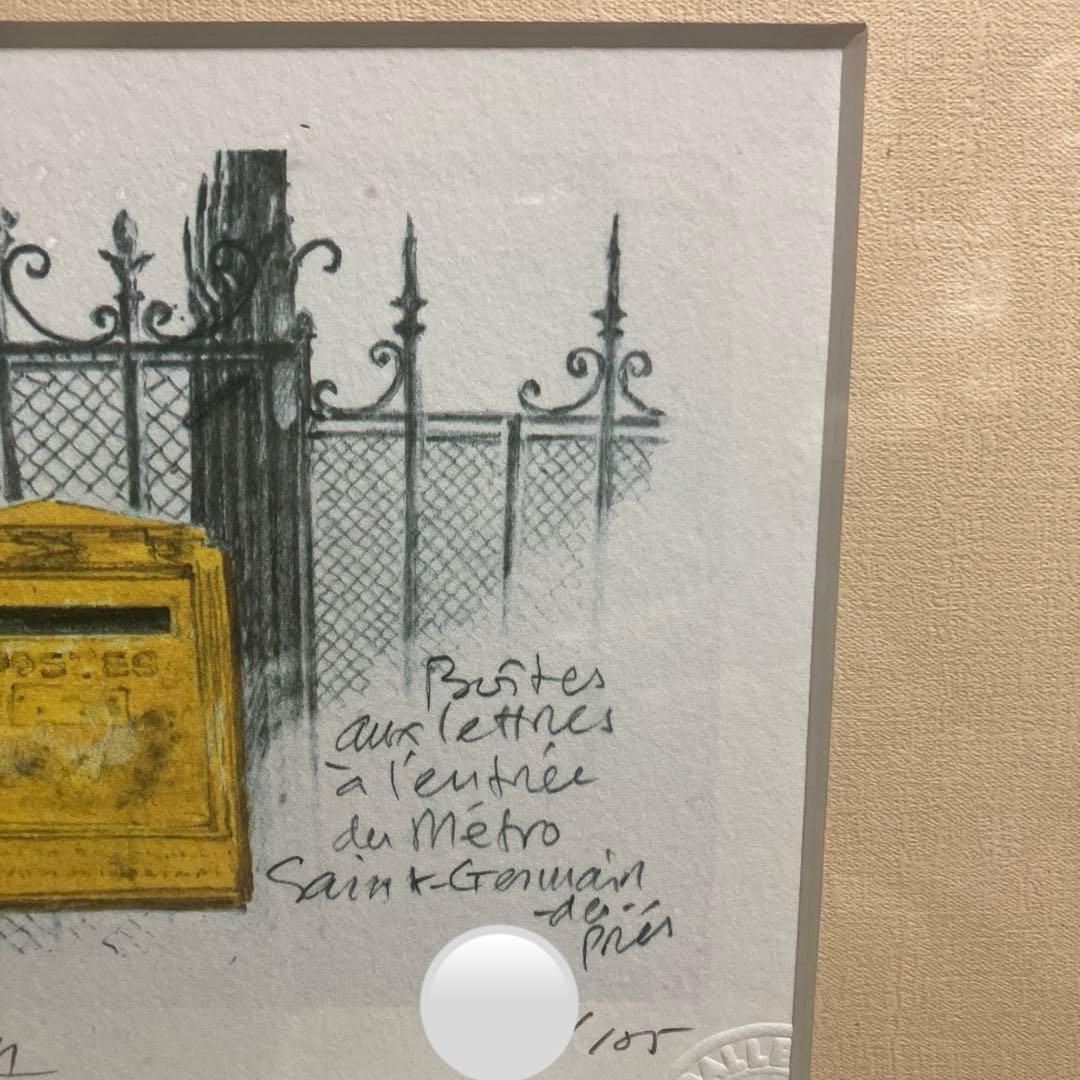 POSTES
Boîtes
aux lettres
à l'entrée
du Métro
Saint-Germain
-des-
Prés
/185